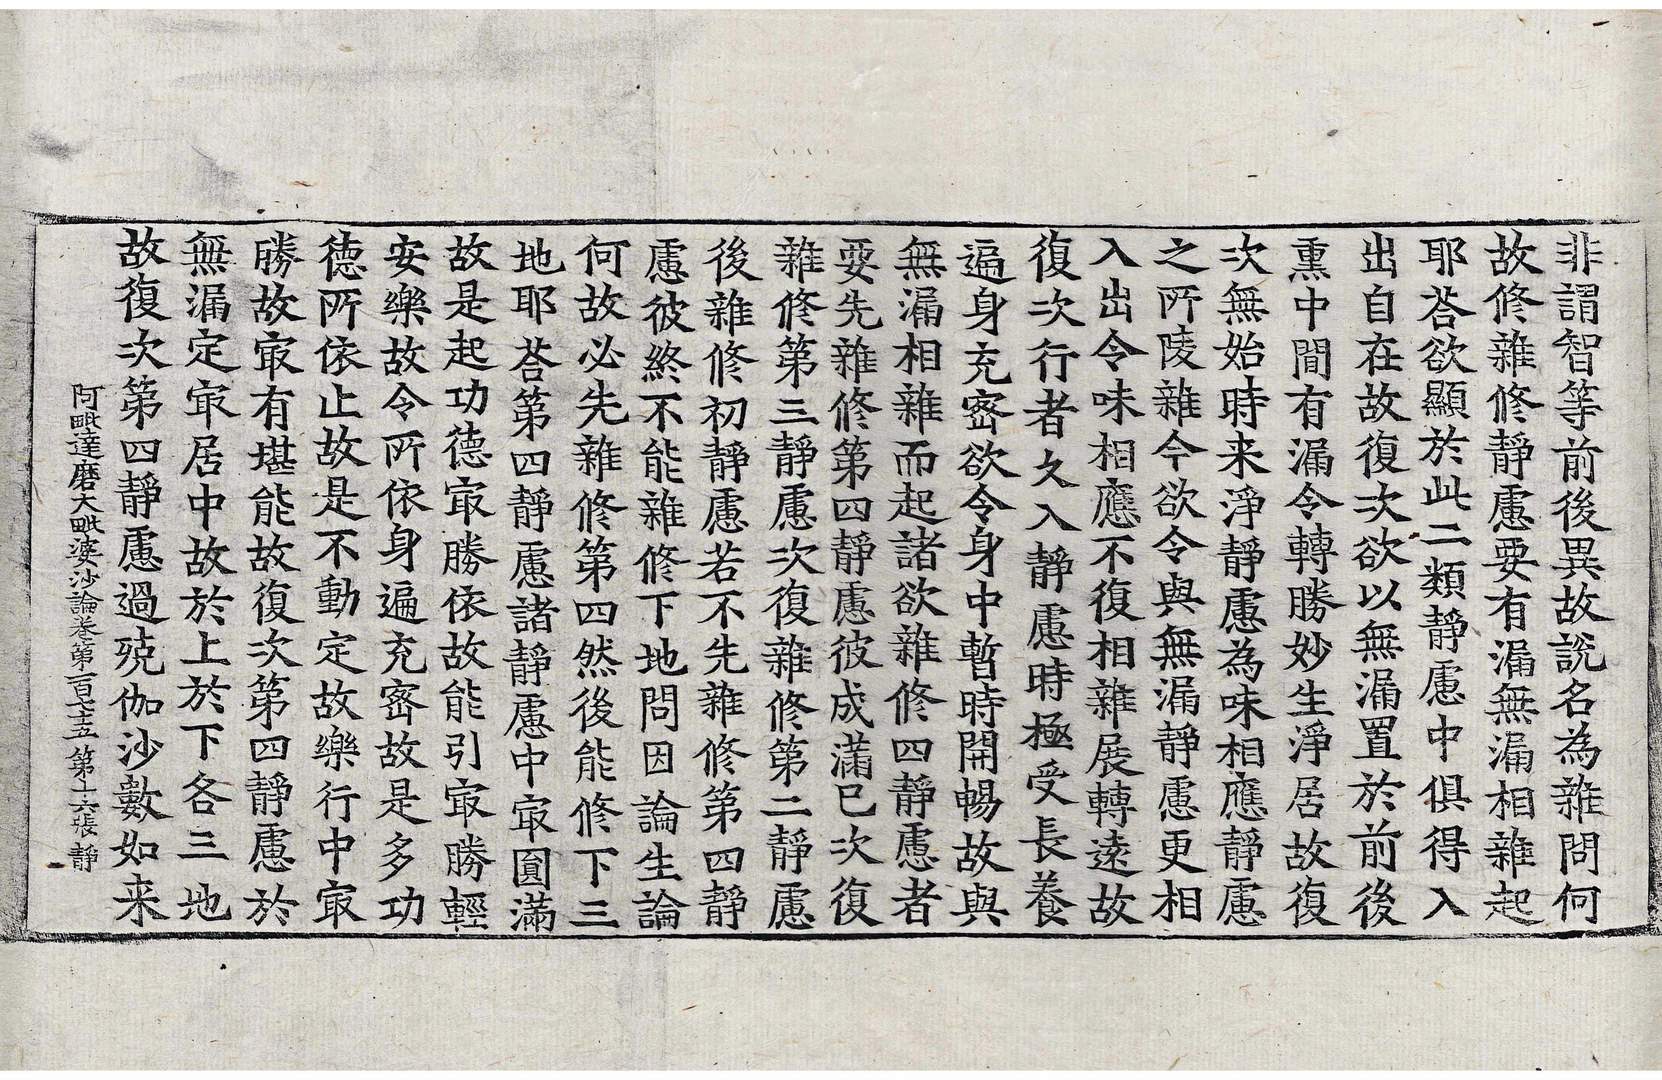 非謂智等前後異故說名為雜問何
故修雜修靜慮要有漏無漏相雜起
耶荅欲顯於此二類靜慮中俱得入
出自在故復次欲以無漏置於前後
熏中間有漏令轉勝妙生淨居故復
次無始時来淨靜慮為味相應靜慮
之所陵雜今欲令與無漏靜慮更相
入出令味相應不復相雜展轉遠故
復次行者久入靜慮時極受長養
遍身充密欲令身中暫時開暢故與
無漏相雜而起諸欲雜修四靜慮者
要先雜修第四靜慮彼成滿已次復
雜修第三靜慮次復雜修第二靜慮
後雜修初靜慮若不先雜修第四靜
慮彼終不能雜修下地問因論生論
何故必先雜修第四然後能修下三
地耶荅第四靜慮諸靜慮中㝡圓滿
故是起功德㝡勝依故能引㝡勝輕
安樂故令所依身遍充密故是多功
德所依止故是不動定故樂行中㝡
勝故㝡有堪能故復次第四靜慮於
無漏定㝡居中故於上於下各三地
故復次第四靜慮過殑伽沙數如来
阿毗達磨大毗婆沙論卷第百七十五 第十六張 靜